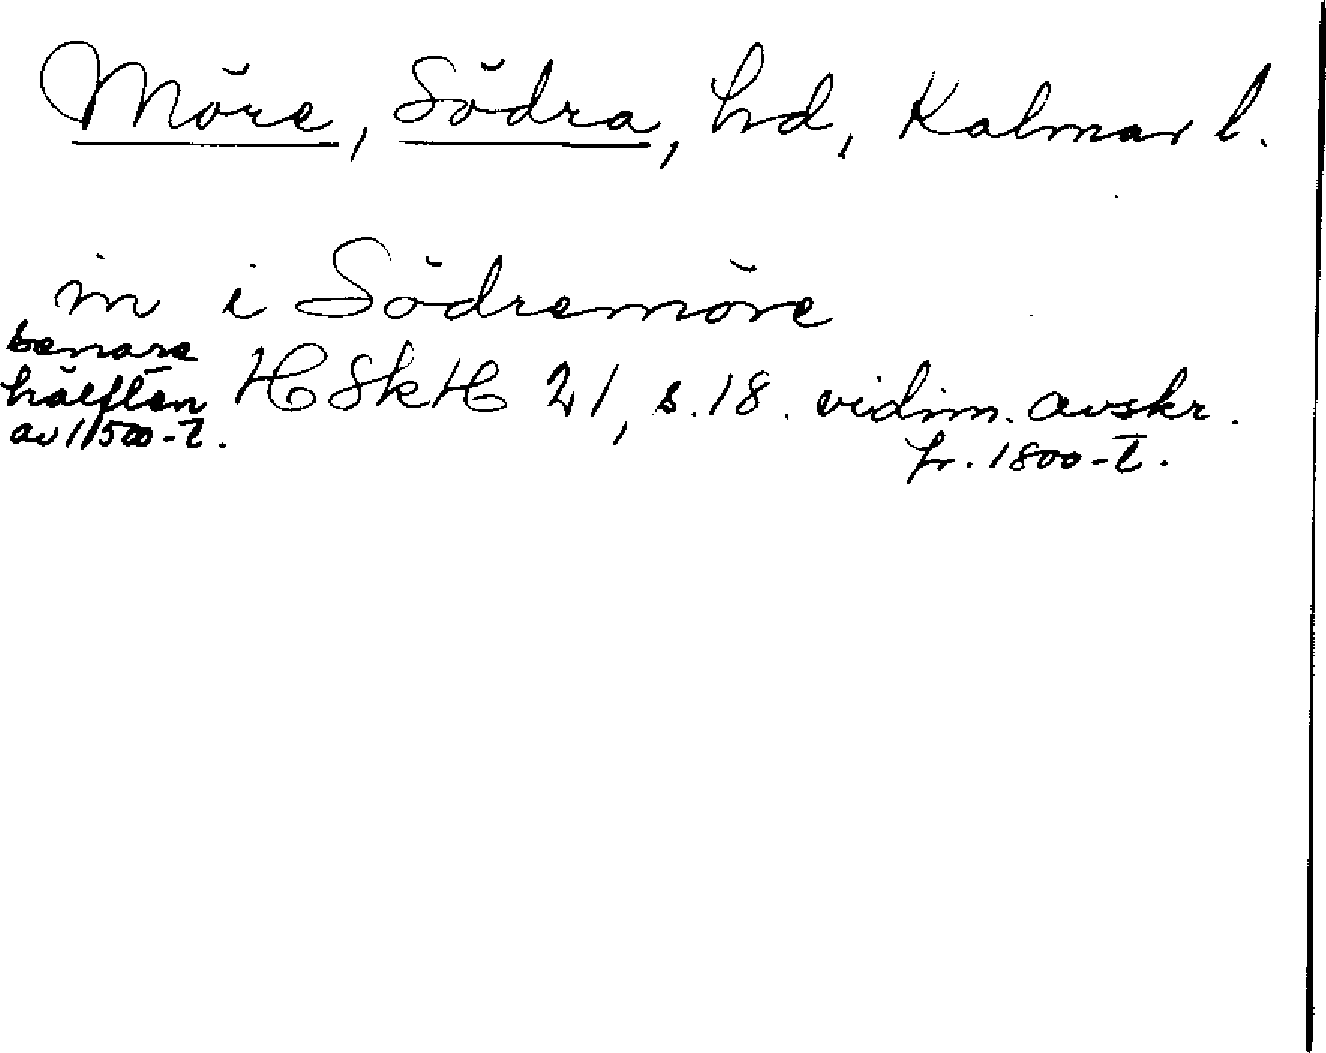 Möre, Södra, hd, Kalmar l.
in i Södremöre
senare
hälften HSkH 21, s. 18. vidim. avskr.
av 1500-t. fr. 1800-t.